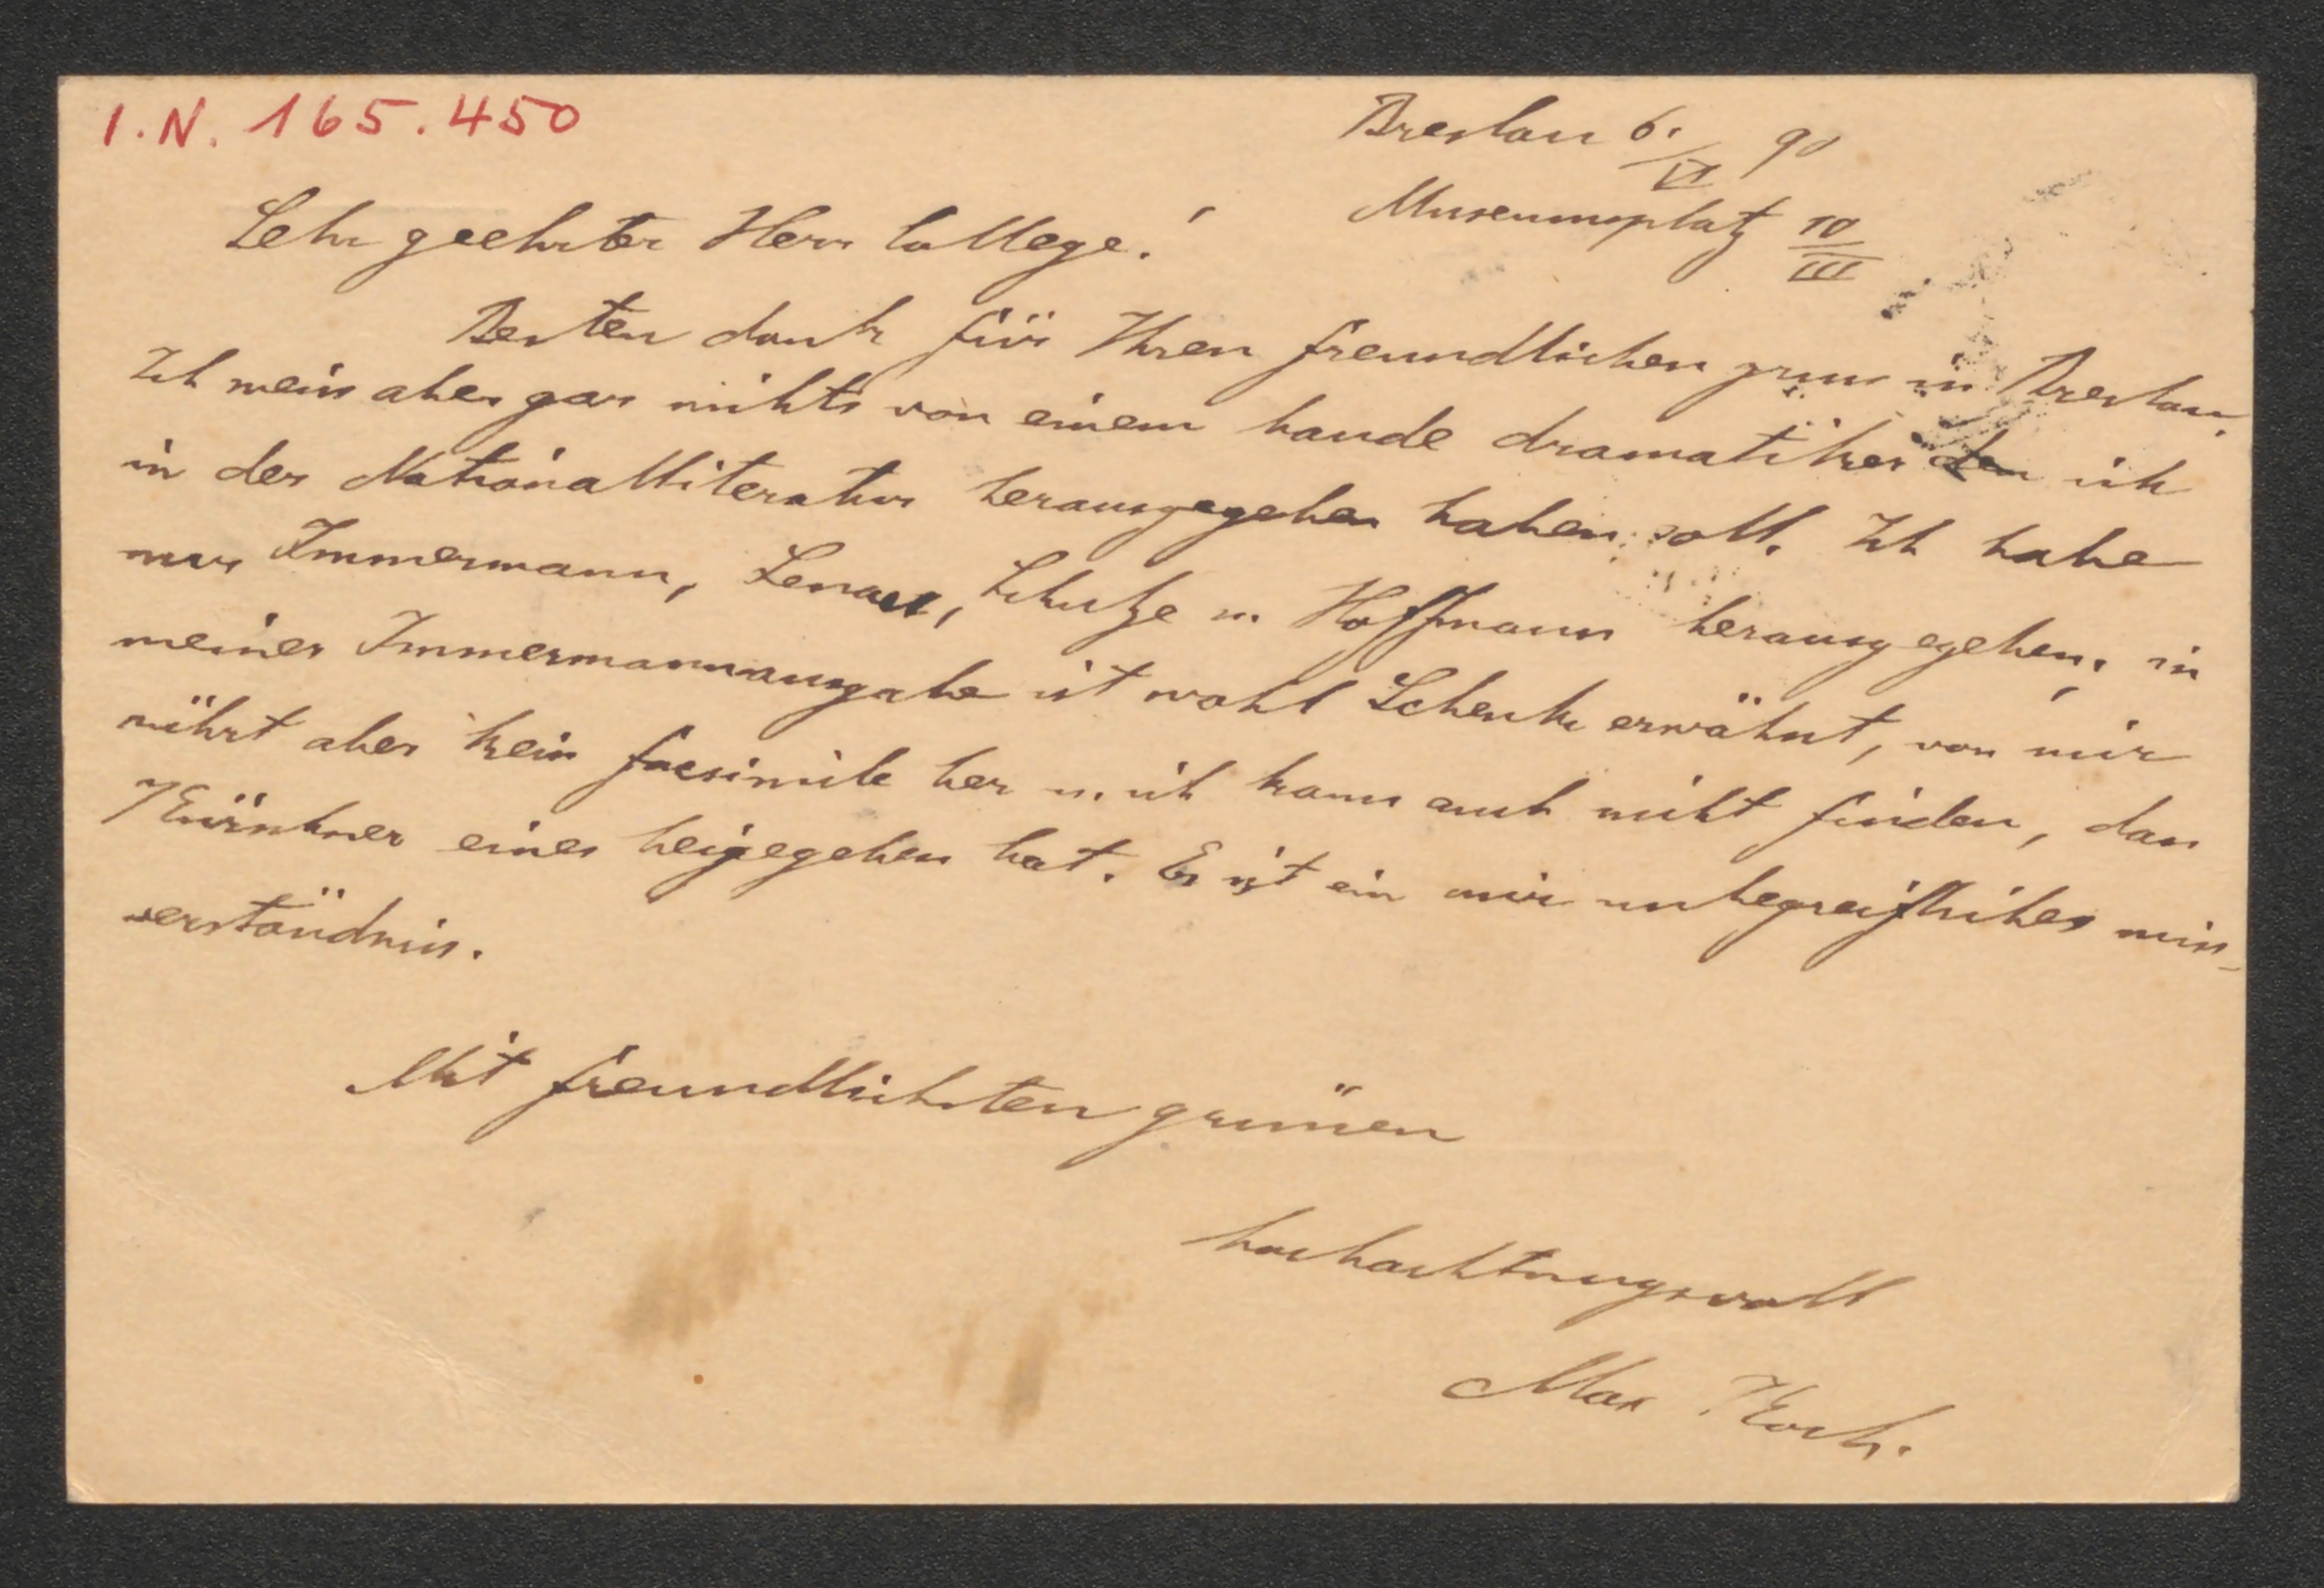 I.N. 165.450
Breslau 6./VI 90
Museumsplatz 10/III
Sehr geehrter Herr College!
Besten dank für Ihren freundlichen gruss in Breslau.
Ich weiss aber gar nichts von einem bande dramatiker den ich
in der Nationalliteratur herausgegeben haben soll. Ich habe
nur Immermann, Lenau, Schulze u. Hoffmann herausgegeben, in
meiner Immermannausgabe ist wohl Schenk erwähnt, von mir
rührt aber kein facsimile her u. ich kann auch nicht finden, dass
Kürschner eines beigegeben hat. Es ist ein mir unbegreifliches miss-
verständnis.
Mit freundlichsten grüssen
hochachtungsvoll
Max Koch.